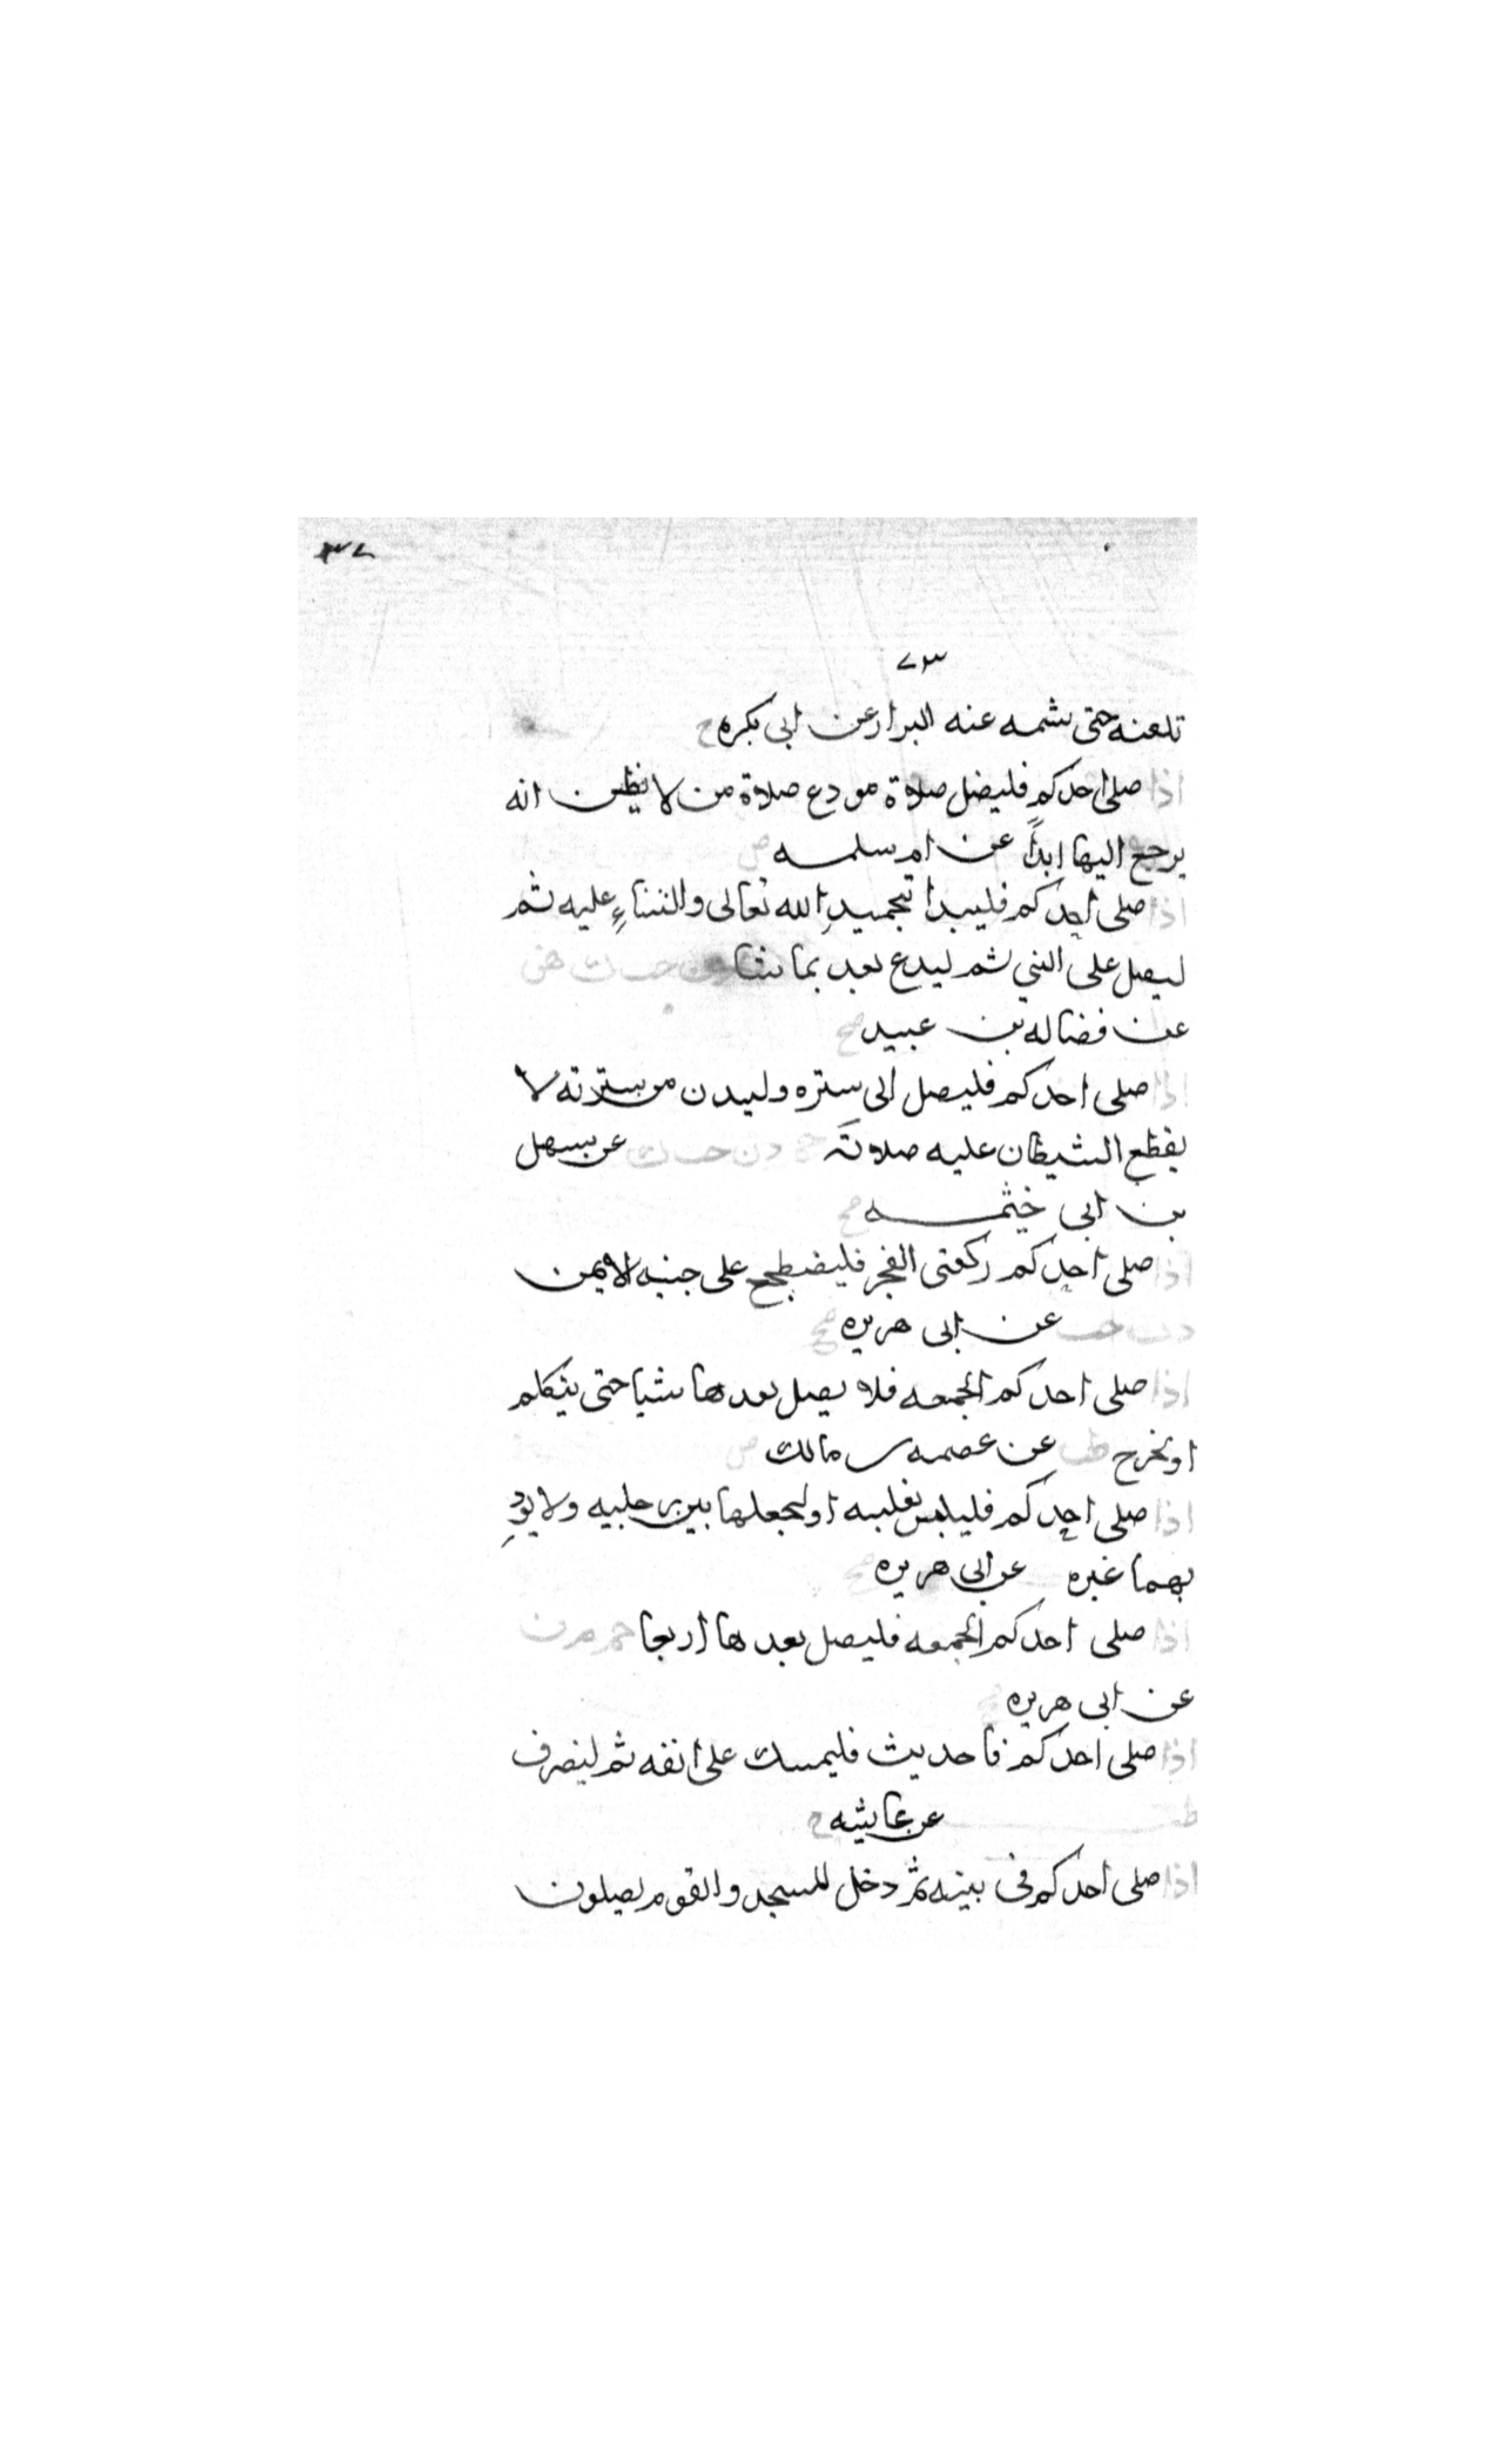 ٣٧
٧٣
تلعنه حتى يشمه عنه البزار عن ابى بكره ح
اذا صلى احدكم فليصل صلاة مودع صلاة من لا يظن انه
يرجع اليها ابداً عن ام سلمه ض
اذا صلى احدكم فليبدا بتحميد الله تعالى والثناء عليه ثم
ليصل على النبي ثم ليدع بعد بما شا حب ك هق
عن فضاله بن عبيد صح
اذا صلى احدكم فليصل الى ستره وليدن من سترته لا
يقطع الشيطان عليه صلاته حم د ن حب ك عن سهل
بن ابى خثمه صح
اذا صلى احدكم ركعتى الفجر فليضطجع على جنبه الايمن
د ت حب عن ابى هريره صح
اذا صلى احدكم الجمعه فلا يصل بعدها شيا حتى يتكلم
او يخرج طب عن عصمه بن مالك ض
اذا صلى احدكم فليلبس نعليه او ليجعلها بين رجليه ولا يوذ
بهما غيره عن ابى هريره صح
اذا صلى احدكم الجمعه فليصل بعدها اربعا حم م ن
عن ابى هريره صح
اذا صلى احدكم فاحديث فليمسك على انفه ثم لينصرف
عن عايشه ح
اذا صلى احدكم فى بيته ثم دخل المسجد والقوم يصلون